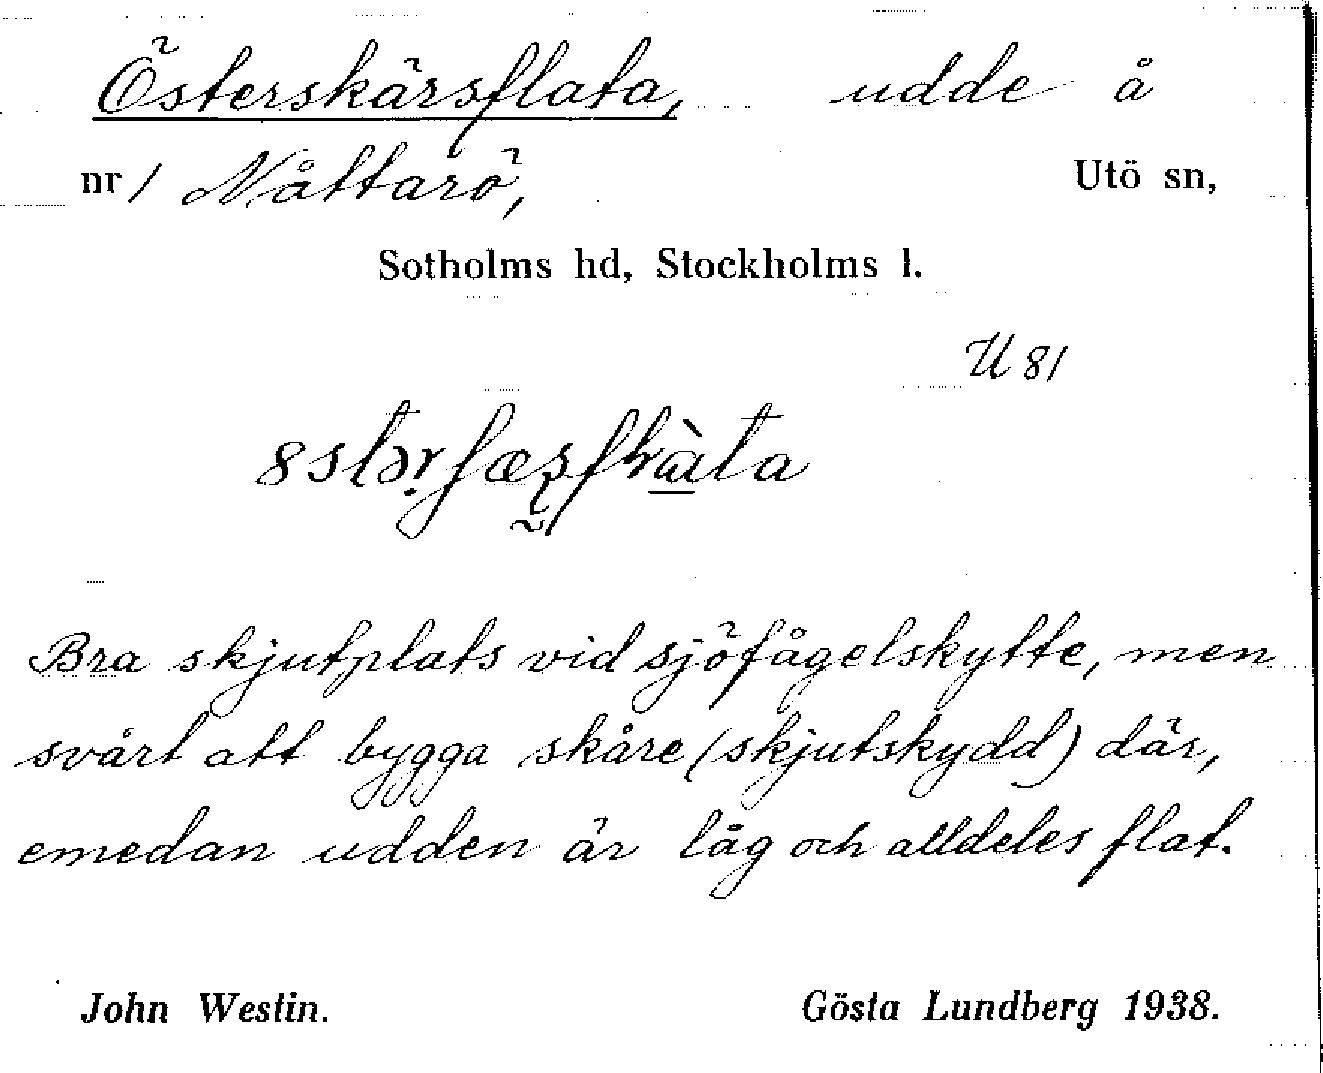 Österskärsflata, udde å
nr 1 Nåttarö, Utö sn,
Sotholms hd, Stockholms l.
U 81
Bra skjutplats vid sjöfågelskytte, men
svårt att bygga skåre (skjutskydd) där,
emedan udden är låg och alldeles flat.
John Westin. Gösta Lundberg 1938.